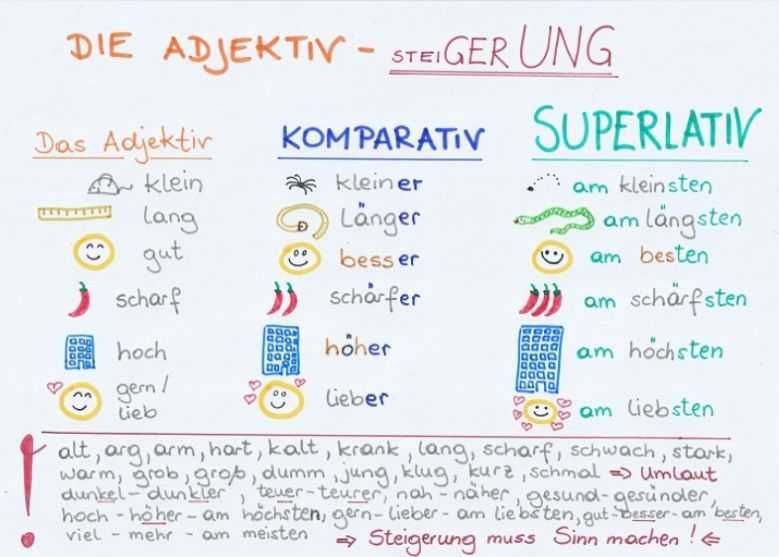 DIE ADJEKTIV - STEIGERUNG
Das Adjektiv KOMPARATIV SUPERLATIV
klein kleiner am kleinsten
lang länger am längsten
gut besser am besten
scharf schärfer am schärfsten
hoch höher am höchsten
gern/
lieb lieber am liebsten
! alt, arg, arm, hart, kalt, krank, lang, scharf, schwach, stark,
warm, grob, groß, dumm, jung, klug, kurz, schmal ⇒ Umlaut
dunkel - dunkler, teuer - teurer, nah - näher, gesund - gesünder,
hoch - höher - am höchsten, gern - lieber - am liebsten, gut - besser - am besten,
viel - mehr - am meisten ⇒ Steigerung muss Sinn machen! ⇐